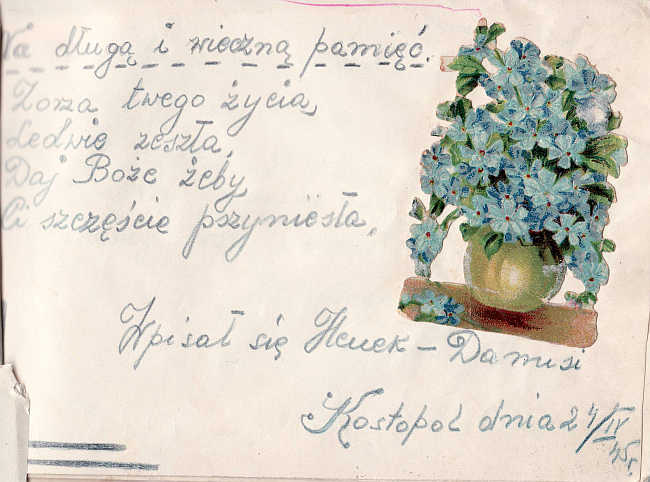 Na długą i wieczną pamięć.
Zorza twego życia,
Ledwie zeszła,
Daj Boże żeby
Ci szczęście pszyniesła.
Wpisał się Heniek – Danusi
Kostopol dnia 24/IV 45r.